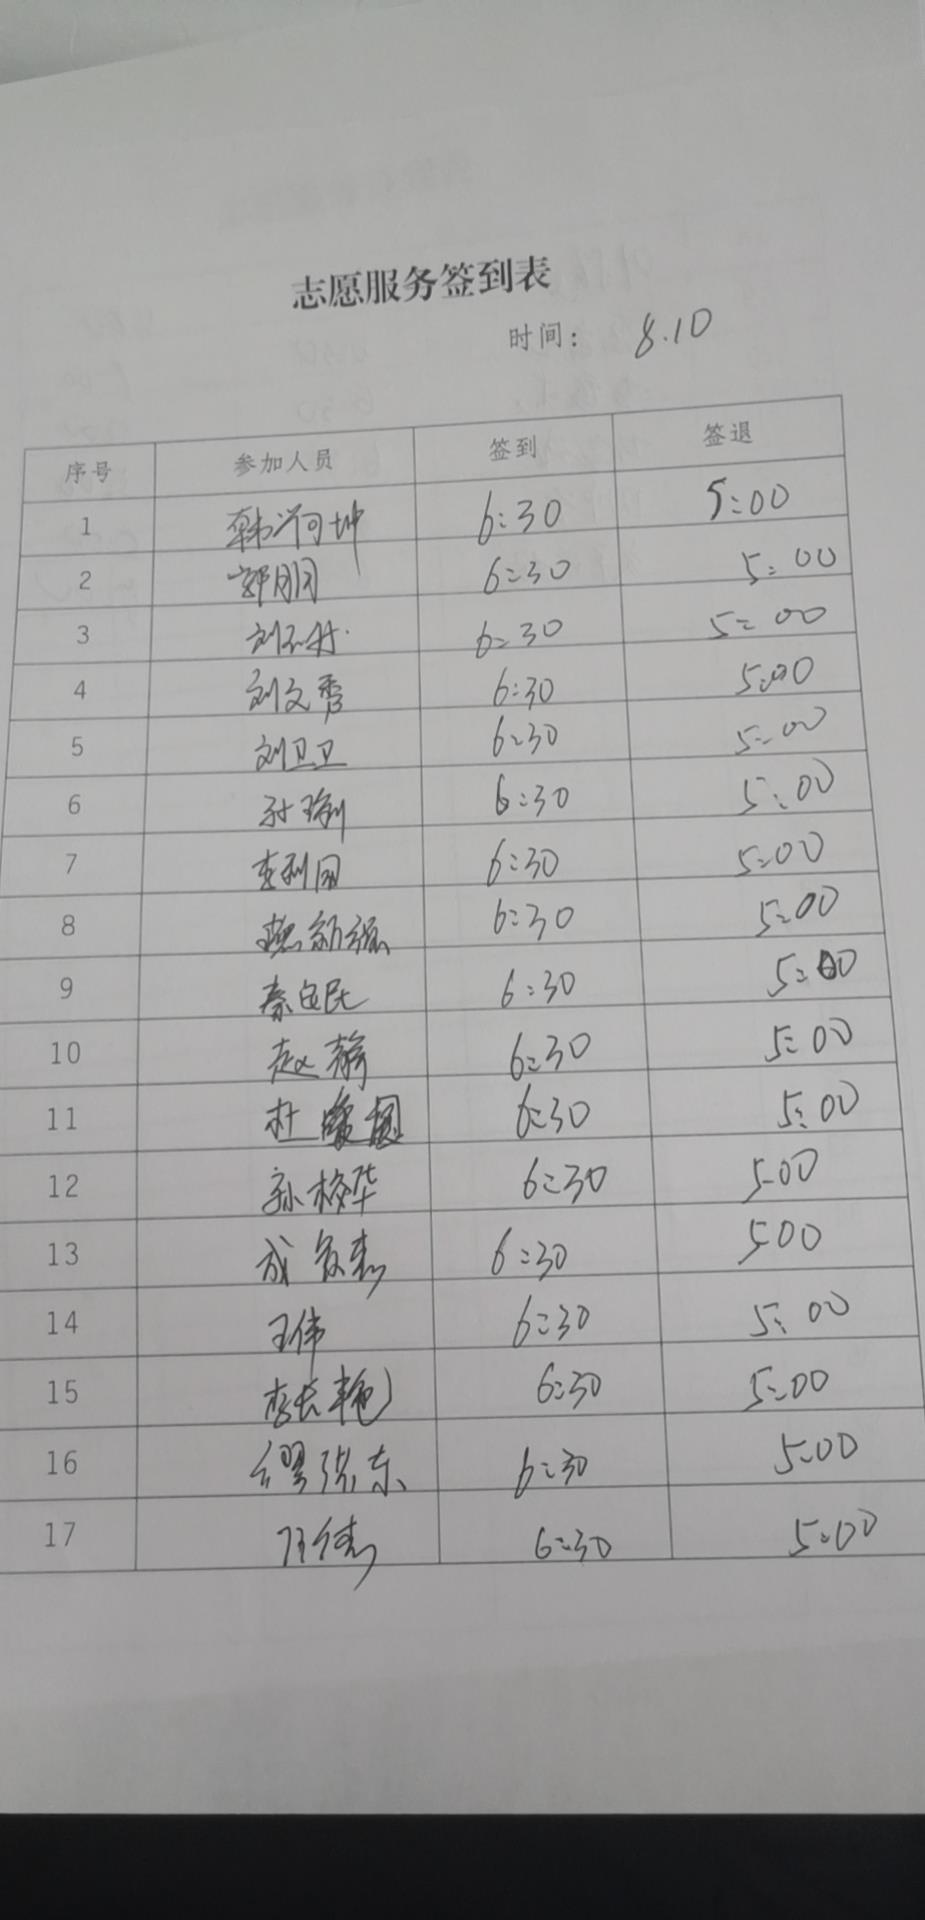 志愿服务签到表
时间: 8.10
序号 参加人员 签到 签退
1 6:30 5:00
2 郭朋 6:30 5:00
3 6:30 5:00
4 刘文秀 6:30 5:00
5 刘卫卫 6:30 5:00
6 6:30 5:00
7 李利国 6:30 5:00
8 6:30 5:00
9 秦白民 6:30 5:00
10 赵 6:30 5:00
11 杜 6:30 5:00
12 孙梅华 6:30 5:00
13 成 6:30 5:00
14 王伟 6:30 5:00
15 李长艳 6:30 5:00
16 缪 东 6:30 5:00
17 汪倩 6:30 5:00